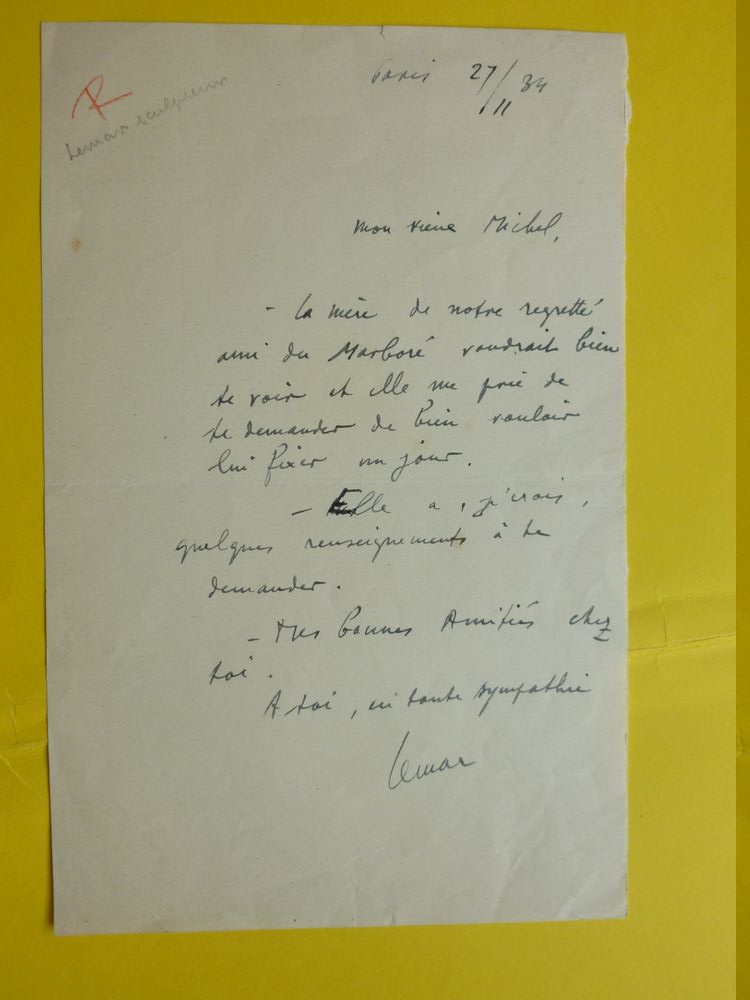 R
Lemar sculpteur
Paris 27/11 34
Mon vieux Michel,
- La mère de notre regretté
ami du Marboré voudrait bien
te voir et elle me prie de
te demander de bien vouloir
lui fixer un jour.
- Elle a, j'crois,
quelques renseignements à te
demander.
- Mes bonnes Amitiés chez
toi.
A toi, en toute sympathie
Lemar